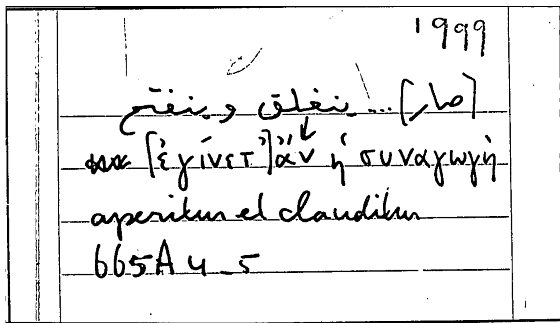 1999
[صار] ... ينغلق وينفتح
[ἐγίνετ'] ἂν ἡ συναγωγὴ
aperitur et clauditur
665A 4-5